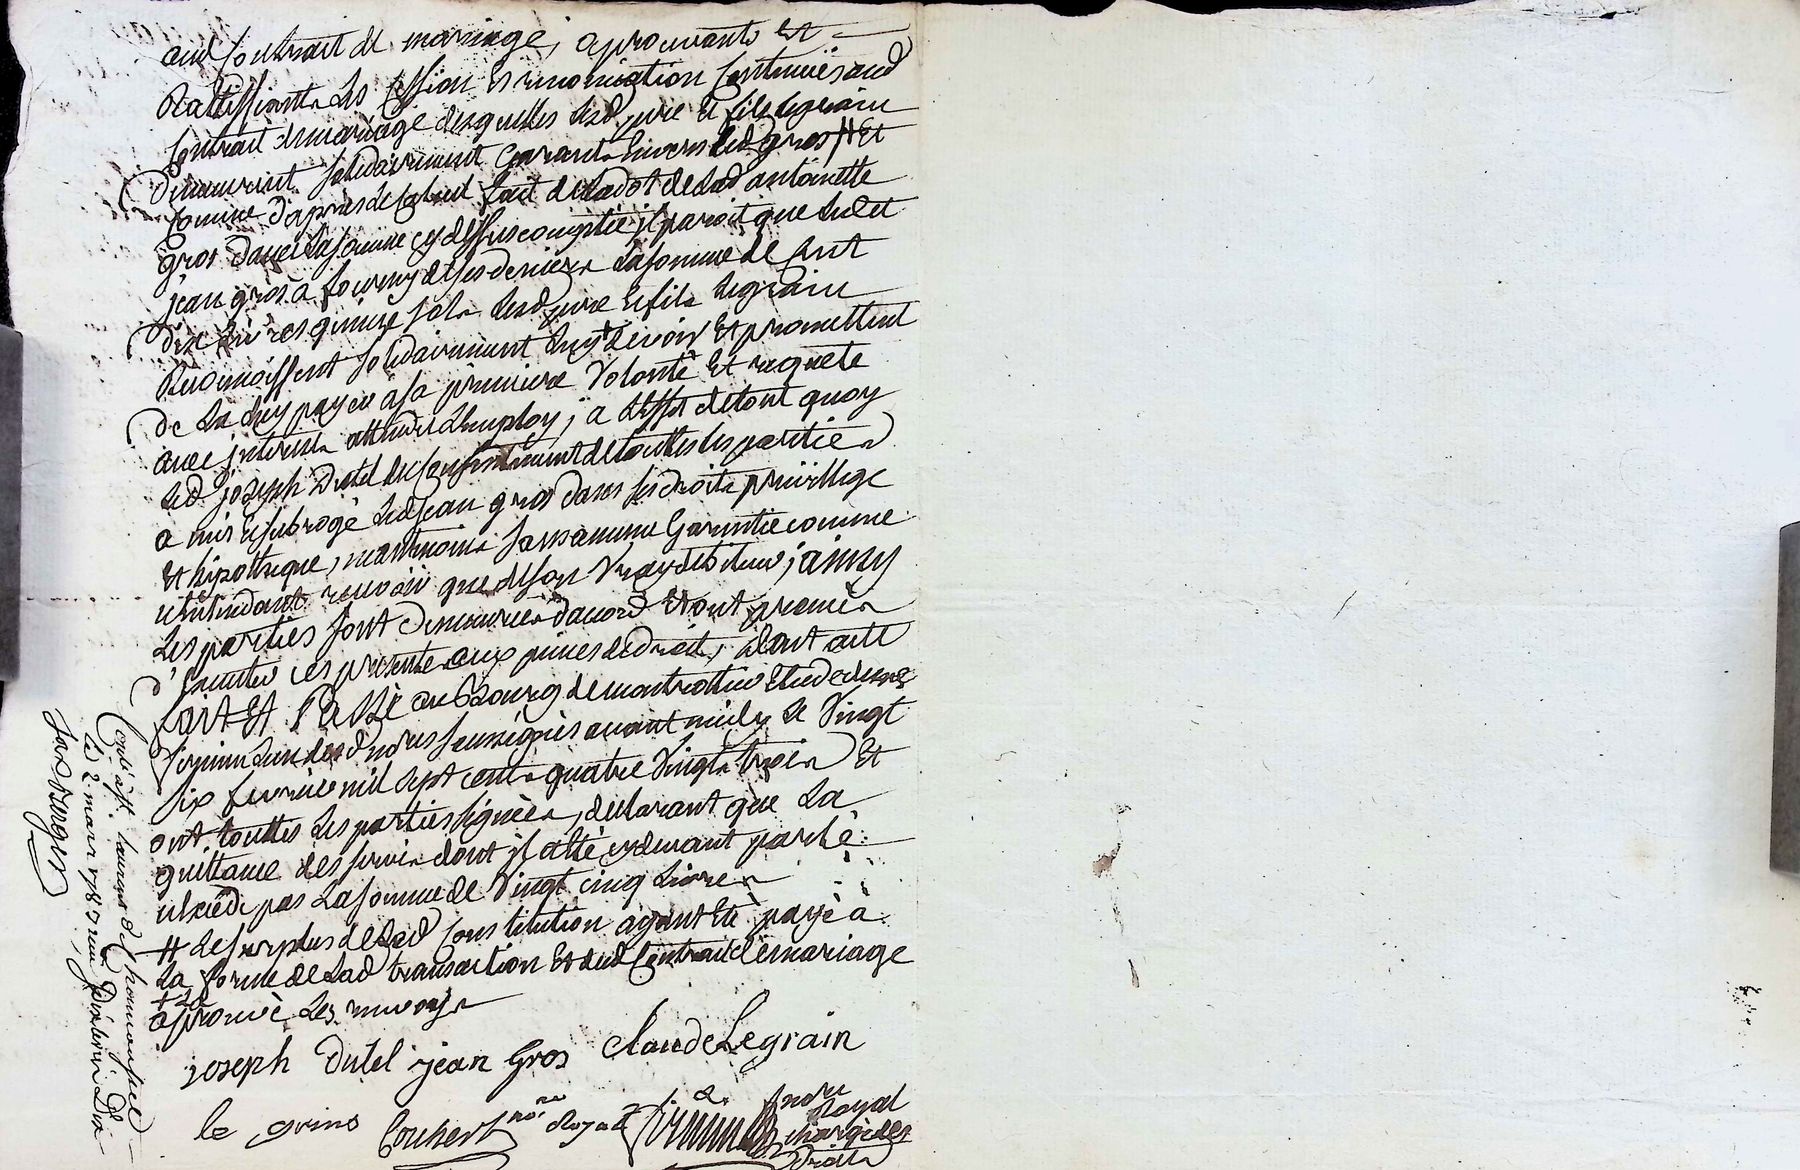 aud Contrait de mariage, aprouvants et
Rattiffiants les Cession et renonciation Contenües aud
Contrait de mariage desquelles lesd pere et fils legrain
demeurent solidairement garants Envers led gros # Et
Comme d'apres le Calcul fait de la dot de lad antoinette
gros dans la somme cy dessus comptée il paroit que ledit
jean gros à fourny de ses deniers la somme de Cent
dix livres quinze sols lesd pere et fils legrain
Reconnoissent solidairement luy devoir Et promettent
de la luy payer à sa premiere volonté Et requete
avec interests attendu l'employ, a l'effet de tout quoy
led joseph dutel du Consentement de touttes les parties
a mis Et subrogé led jean gros dans ses droits privillege
Et hipotheque, neantmoins sans aucune Garentie comme
n'entendant recevoir que de son vray debiteur, ainsy
les parties sont demeurées d'acord Et ont promis
d'Executer ces presentes aux peines de droit, dont acte
fait Et Passé au Bourg de montrottier Etude de me
l'un desd nores soussignés avant midy le vingt
six fevrier mil sept cents quatre vingts trois Et
ont touttes les parties signées, declarant que la
quittance des dont il a eté cydevant parlé
n'excede pas la somme de vingt cinq livres
# le surplus de lad Constitution ayant Eté payé à
la forme de lad transaction Et dud Contrait de mariage
+ la
aprouvé les renvoys
joseph Dutel jean Gros Claude Legrain
le grins Couhert nore Royal nore
Royal
chargé des
droits
Conlé à st laurent de chamousset
le 2 mars 1783 reçu